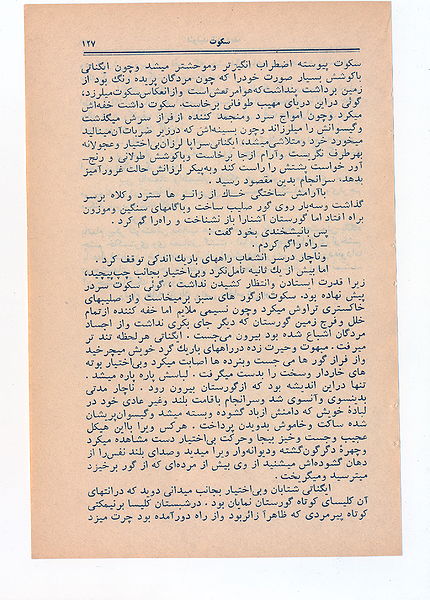 ۱۲۷ سکوت
سکوت پیوسته اضطراب انگیزتر وموحشتر میشد وچون ایگناتی
باکوشش بسیار صورت خودرا که چون مردگان پریده رنگ بود از
زمین برداشت پنداشت که هوا مرتعش است و از انعکاس سکوت میلرزد،
گوئی دراین دریای مهیب طوفانی برخاست. سکوت داشت خفه‌اش
میکرد وچون امواج سرد ومنجمد کننده ازفراز سرش میگذشت
وگیسوانش را میلرزاند وچون بسینه‌اش که درزیر ضربات آن مینالید
میخورد خرد ومتلاشی میشد، ایگناتی سراپا لرزان بی‌اختیار وعجولانه
بهرطرف نگریست وآرام ازجا برخاست وباکوشش طولانی و رنج‌ـ
آور خواست پشتش را راست کند وبه‌پیکر لرزانش حالت غرورآمیز
بدهد، سرانجام بدین مقصود رسید.
باآرامش ساختگی خاک از زانو ها سترد وکلاه برسر
گذاشت وسه‌بار روی گور صلیب ساخت وباگامهای سنگین وموزون
براه افتاد اما گورستان آشنارا باز نشناخت و راه‌را گم کرد.
پس بانیشخندی بخود گفت :
ـ راه راگم کردم .
وناچار درسر انشعاب راههای باریک اندکی توقف کرد .
اما بیش از یک ثانیه تامل نکرد وبی‌اختیار بجانب چپ پیچید،
زیرا قدرت ایستادن وانتظار کشیدن نداشت ، گوئی سکوت سردر
پیش نهاده بود. سکوت ازگور های سبز برمیخاست واز صلیبهای
خاکستری تراوش میکرد وچون نسیمی ملایم اما خفه کننده ازتمام
خلل وفرج زمین گورستان که دیگر جای بکری نداشت واز اجساد
مردگان اشباع شده بود بیرون می‌جست . ایگناتی هرلحظه تند تر
میرفت . مبهوت وحیرت زده درراههای باریک گرد خویش میچرخید
واز فراز گور ها می جست وبنرده ها اصابت میکرد وبی‌اختیار بوته
های خاردار وسخت را بدست میگرفت . لباسش پاره پاره میشد.
تنها دراین اندیشه بود که ازگورستان بیرون رود . ناچار مدتی
بدینسوی وآنسوی شد وسرانجام باقامت بلند وغیر عادی خود در
لبادهٔ خویش که دامنش ازباد گشوده وبسته میشد وگیسوان‌پریشان
شده ساکت وخاموش بدویدن پرداخت . هرکس ویرا بااین هیکل
عجیب وجست وخیز بیجا وحرکت بی‌اختیار دست مشاهده میکرد
وچهرهٔ دگرگون‌گشته ودیوانه‌وار ویرا میدید وصدای بلند نفس‌را از
دهان گشوده‌اش میشنید از وی بیش از مرده‌ای که از گور برخیزد
میترسید ومیگریخت .
ایگناتی شتابان وبی‌اختیار بجانب میدانی دوید که درانتهای
آن کلیسای کوتاه گورستان نمایان بود . درشبستان کلیسا برنیمکتی
کوتاه پیرمردی که ظاهرآ زائربود واز راه دورآمده بود چرت میزد